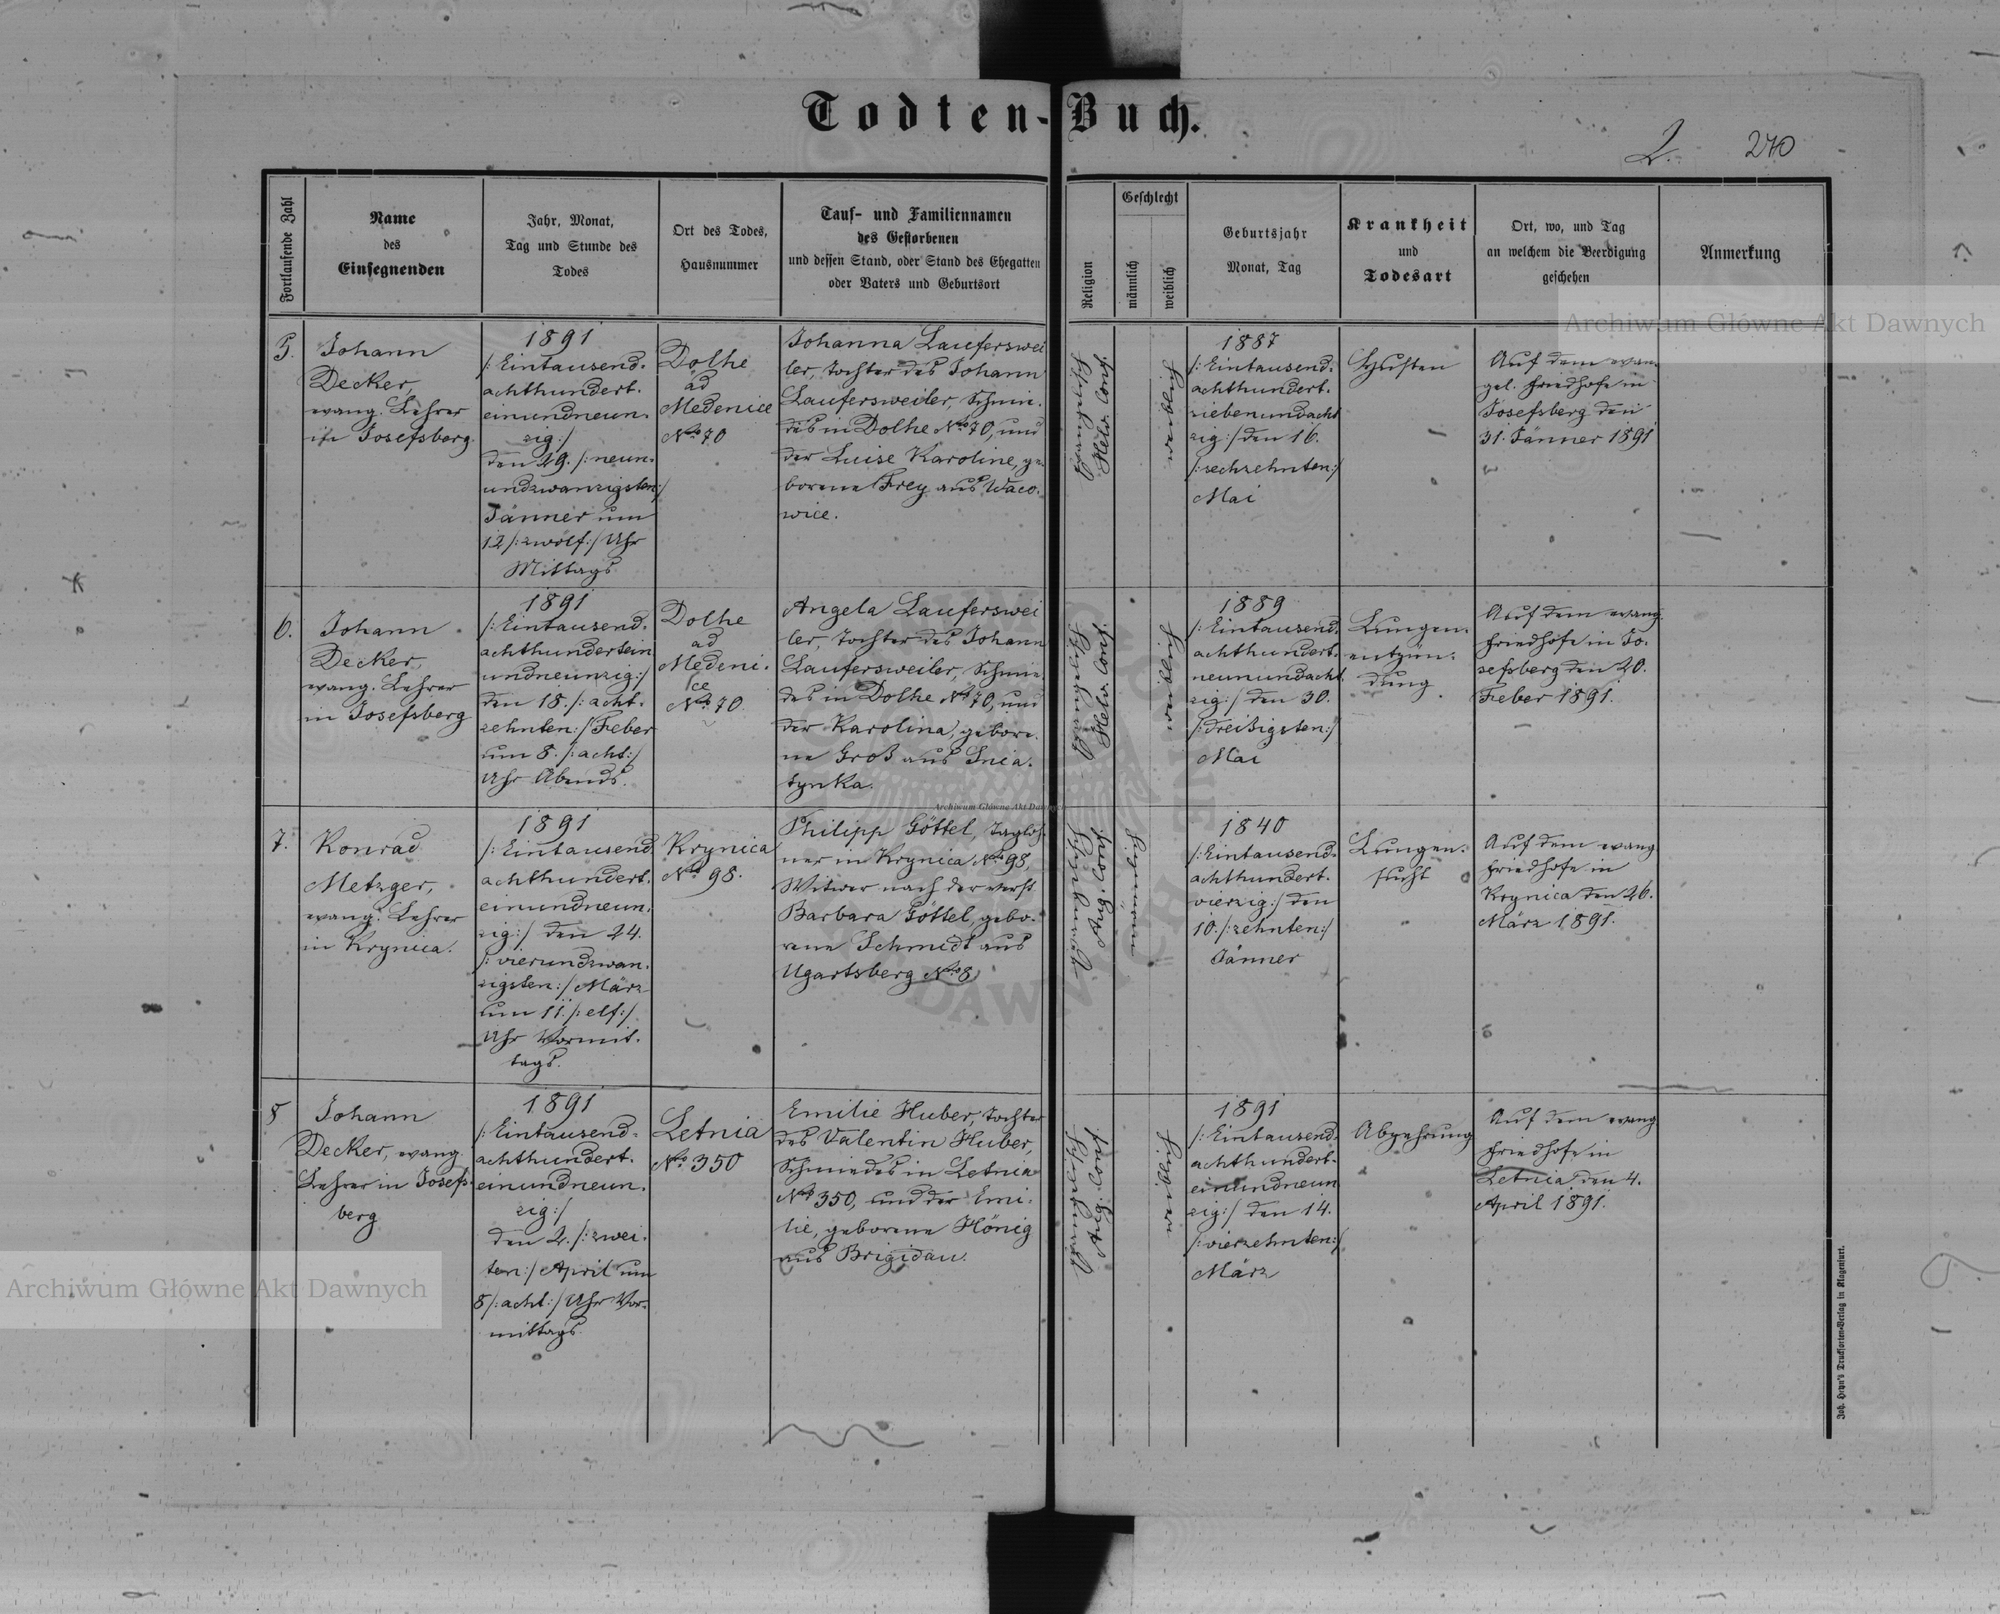 Todten-Buch.
2. 270
Fortlaufende Zahl
Name
des
Einsegnenden
Jahr, Monat,
Tag und Stunde des
Todes
Ort des Todes,
Hausnummer
Tauf- und Familiennamen
des Gestorbenen
und dessen Stand, oder Stand des Ehegatten
oder Vaters und Geburtsort
Religion
Geschlecht
männlich
weiblich
Geburtsjahr
Monat, Tag
Krankheit
und
Todesart
Ort, wo, und Tag
an welchem die Beerdigung
geschehen
Anmerkung
5.
Johann
Decker,
evang. Lehrer
in Josefsberg
1891
/: Eintausend-
achthundert-
einundneun-
zig :/
den 29. /: neun-
undzwanzigsten :/
Jänner um
12 /: zwölf :/ Uhr
Mittags
Dolhe
ad
Medenice
No 70
Johanna Lauferswei
ler, Tochter des Johann
Laufersweiler, Schmie-
des in Dolhe No 70, und
der Luise Karoline, ge-
borene Frey aus Waco-
wice.
Evangelisch
Helv. Conf.
weiblich
1887
/: Eintausend-
achthundert-
siebenundacht
zig :/ den 16.
/: sechzehnten :/
Mai
Husten
Auf dem evan-
gel. Friedhofe in
Josefsberg den
31. Jänner 1891
6.
Johann
Decker,
evang. Lehrer
in Josefsberg
1891
/: Eintausend-
achthundertein
undneunzig :/
den 18. /: acht-
zehnten :/ Feber
um 8. /: acht :/
Uhr Abends.
Dolhe
ad
Medeni-
ce
No 70.
Angela Lauferswei
ler, Tochter des Johann
Laufersweiler, Schmie-
des in Dolhe No 70, und
der Karolina, gebore-
ne Groß aus Snia-
tynka.
Evangelisch
Helv. Conf.
weiblich
1889
/: Eintausend-
achthundert-
neunundacht
zig :/ den 30.
/: dreißigsten :/
Mai
Lungen-
entzün-
dung
Auf dem evang.
Friedhofe in Jo-
sefsberg den 20.
Feber 1891.
7.
Konrad
Metzger,
evang. Lehrer
in Krynica.
1891
/: Eintausend
achthundert-
einundneun-
zig :/ den 24.
/: vierundzwan-
zigsten :/ März
um 11. /: elf :/
Uhr Vormit-
tags.
Krynica
No 98.
Philipp Göttel, Taglöh-
ner in Krynica No 98,
Witwer nach der verst.
Barbara Göttel, gebo-
rene Schmidt aus
Ugartsberg No 8
Evangelisch
Aug. Conf.
männlich
1840
/: Eintausend-
achthundert-
vierzig :/ den
10. /: zehnten :/
Jänner
Lungen-
sucht
Auf dem evang
Friedhofe in
Krynica den 26.
März 1891.
8
Johann
Decker, evang.
Lehrer in Josefs-
berg
1891
/: Eintausend-
achthundert-
einundneun-
zig :/
den 2. /: zwei-
ten :/ April um
8 /: acht :/ Uhr Vor-
mittags.
Letnia
No. 350
Emilie Huber, Tochter
des Valentin Huber,
Schmiedes in Letnia
No 350, und der Emi-
lie, geborene Hönig
aus Brigidau.
Evangelisch
Aug. Conf.
weiblich
1891
/: Eintausend-
achthundert-
einundneun
zig :/ den 14.
/: vierzehnten :/
März
Abzehrung
Auf dem evang
Friedhofe in
Letnia den 4.
April 1891.
Joh. Heyn's Drucksorten-Verlag in Klagenfurt.
Archiwum Główne Akt Dawnych
Archiwum Główne Akt Dawnych
Archiwum Główne Akt Dawnych